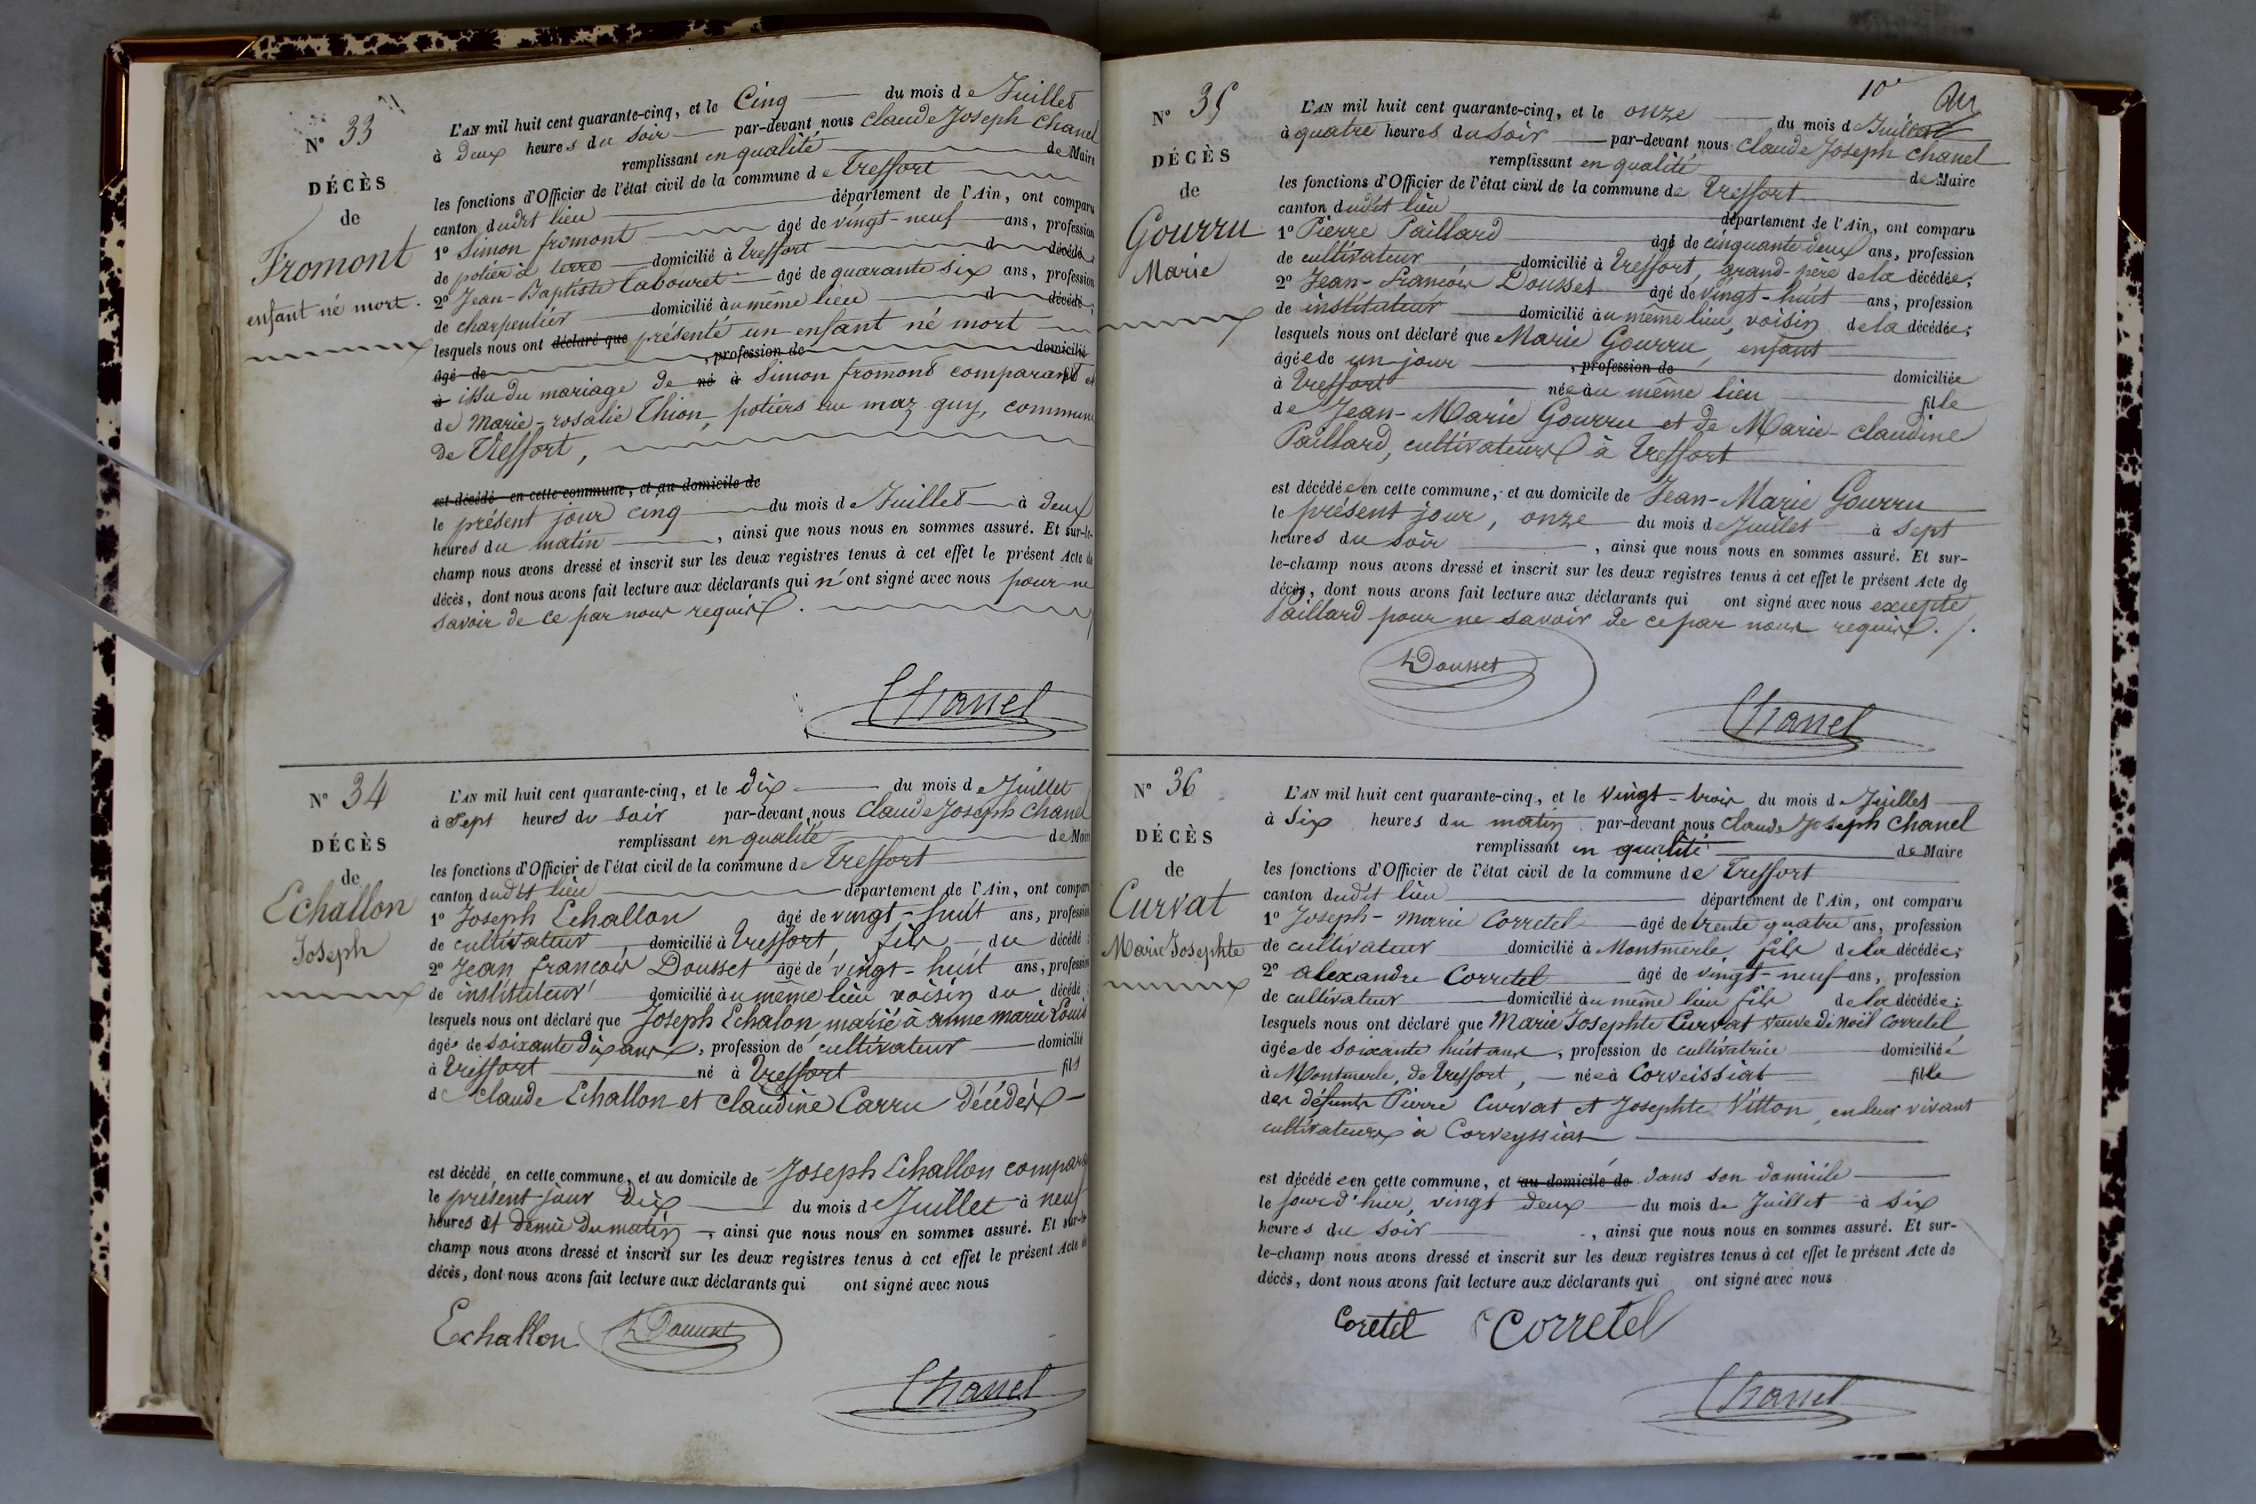 N° 33
DÉCÈS
de
Fromont
enfant né mort.
L'AN mil huit cent quarante-cinq, et le Cinq du mois de Juillet
à Deux heures du soir par-devant nous Claude Joseph Chanel
remplissant en qualité de Maire
les fonctions d'Officier de l'état civil de la commune de Treffort
canton dudit lieu département de l'Ain, ont comparu
1° Simon fromont âgé de vingt-neuf ans, profession
de potier à terre domicilié à Treffort d décédé
2° Jean-Baptiste Tabouret âgé de quarante six ans, profession
de charpentier domicilié au même lieu d décédé;
lesquels nous ont déclaré que présenté un enfant né mort
âgé de , profession de domicilié
à issu du mariage de né à Simon fromont comparant et
de Marie-rosalie Thion, potiers au maz guy, commune
de Treffort,
est décédé en cette commune, et au domicile de
le présent jour cinq du mois de Juillet à Deux
heures du matin , ainsi que nous nous en sommes assuré. Et sur-le-
champ nous avons dressé et inscrit sur les deux registres tenus à cet effet le présent Acte de
décès, dont nous avons fait lecture aux déclarants qui n'ont signé avec nous pour ne
savoir de ce par nous requis.
Chanel
N° 34
DÉCÈS
de
Echallon
Joseph
L'AN mil huit cent quarante-cinq, et le dix du mois de Juillet
à Sept heures du soir par-devant nous Claude Joseph Chanel
remplissant en qualité de Maire
les fonctions d'Officier de l'état civil de la commune de Treffort
canton dudit lieu département de l'Ain, ont comparu
1° Joseph Echallon âgé de vingt-huit ans, profession
de cultivateur, domicilié à Treffort, fils du décédé;
2° Jean françois Dousset âgé de vingt-huit ans, profession
de instituteur domicilié au même lieu voisin du décédé;
lesquels nous ont déclaré que Joseph Echalon marié à anne marie Louis
âgé de soixante dix ans, profession de cultivateur domicilié
à Treffort né à Treffort fils
d Claude Echallon et Claudine Carru décédés
est décédé, en cette commune, et au domicile de Joseph Echallon compara
le présent jour Dix du mois de Juillet à neuf
heures et demie du matin, ainsi que nous nous en sommes assuré. Et sur-le
champ nous avons dressé et inscrit sur les deux registres tenus à cet effet le présent Acte de
décès, dont nous avons fait lecture aux déclarants qui ont signé avec nous
Echallon Dousset
Chanel
10e
N° 35
DÉCÈS
de
Gourru
Marie
L'AN mil huit cent quarante-cinq, et le onze du mois de Juillet
à quatre heures du soir par-devant nous Claude Joseph Chanel
remplissant en qualité de Maire
les fonctions d'Officier de l'état civil de la commune de Treffort
canton dudit lieu département de l'Ain, ont comparu
1° Pierre Paillard âgé de cinquante deux ans, profession
de cultivateur domicilié à Treffort, grand-père de la décédée;
2° Jean-françois Dousset âgé de vingt-huit ans, profession
de instituteur domicilié au même lieu, voisin de la décédée;
lesquels nous ont déclaré que Marie Gourru, enfant
âgée de un jour , profession de domiciliée
à Treffort née au même lieu fille
de Jean-Marie Gourru et de Marie-Claudine
Paillard, cultivateurs à Treffort
est décédée en cette commune, et au domicile de Jean-Marie Gourru
le présent jour, onze du mois de Juillet à sept
heures du soir , ainsi que nous nous en sommes assuré. Et sur-
le-champ nous avons dressé et inscrit sur les deux registres tenus à cet effet le présent Acte de
décès, dont nous avons fait lecture aux déclarants qui ont signé avec nous excepté
Paillard pour ne savoir de ce par nous requis. /.
Dousset
Chanel
N° 36
DÉCÈS
de
Curvat
Marie Josephte
L'AN mil huit cent quarante-cinq, et le vingt-trois du mois de Juillet
à Six heures du matin par-devant nous Claude Joseph Chanel
remplissant en qualité de Maire
les fonctions d'Officier de l'état civil de la commune de Treffort
canton dudit lieu département de l'Ain, ont comparu
1° Joseph-Marie Corretel âgé de trente quatre ans, profession
de cultivateur domicilié à Montmerle, fils de la décédée;
2° alexandre Corretel âgé de vingt-neuf ans, profession
de cultivateur domicilié au même lieu fils de la décédée;
lesquels nous ont déclaré que Marie Josephte Curvat veuve de Noël Corretel
âgée de soixante huit ans, profession de cultivatrice domiciliée
à Montmerle, de Treffort, née à Corveissiat fille
des défunts Pierre Curvat et Josephte Vitton, en leur vivant
cultivateurs à Corveyssiat
est décédée en cette commune, et au domicile de dans son domicile
le jour d'hier, vingt deux du mois de Juillet à six
heures du soir , ainsi que nous nous en sommes assuré. Et sur-
le-champ nous avons dressé et inscrit sur les deux registres tenus à cet effet le présent Acte de
décès, dont nous avons fait lecture aux déclarants qui ont signé avec nous
Coretel Corretel
Chanel